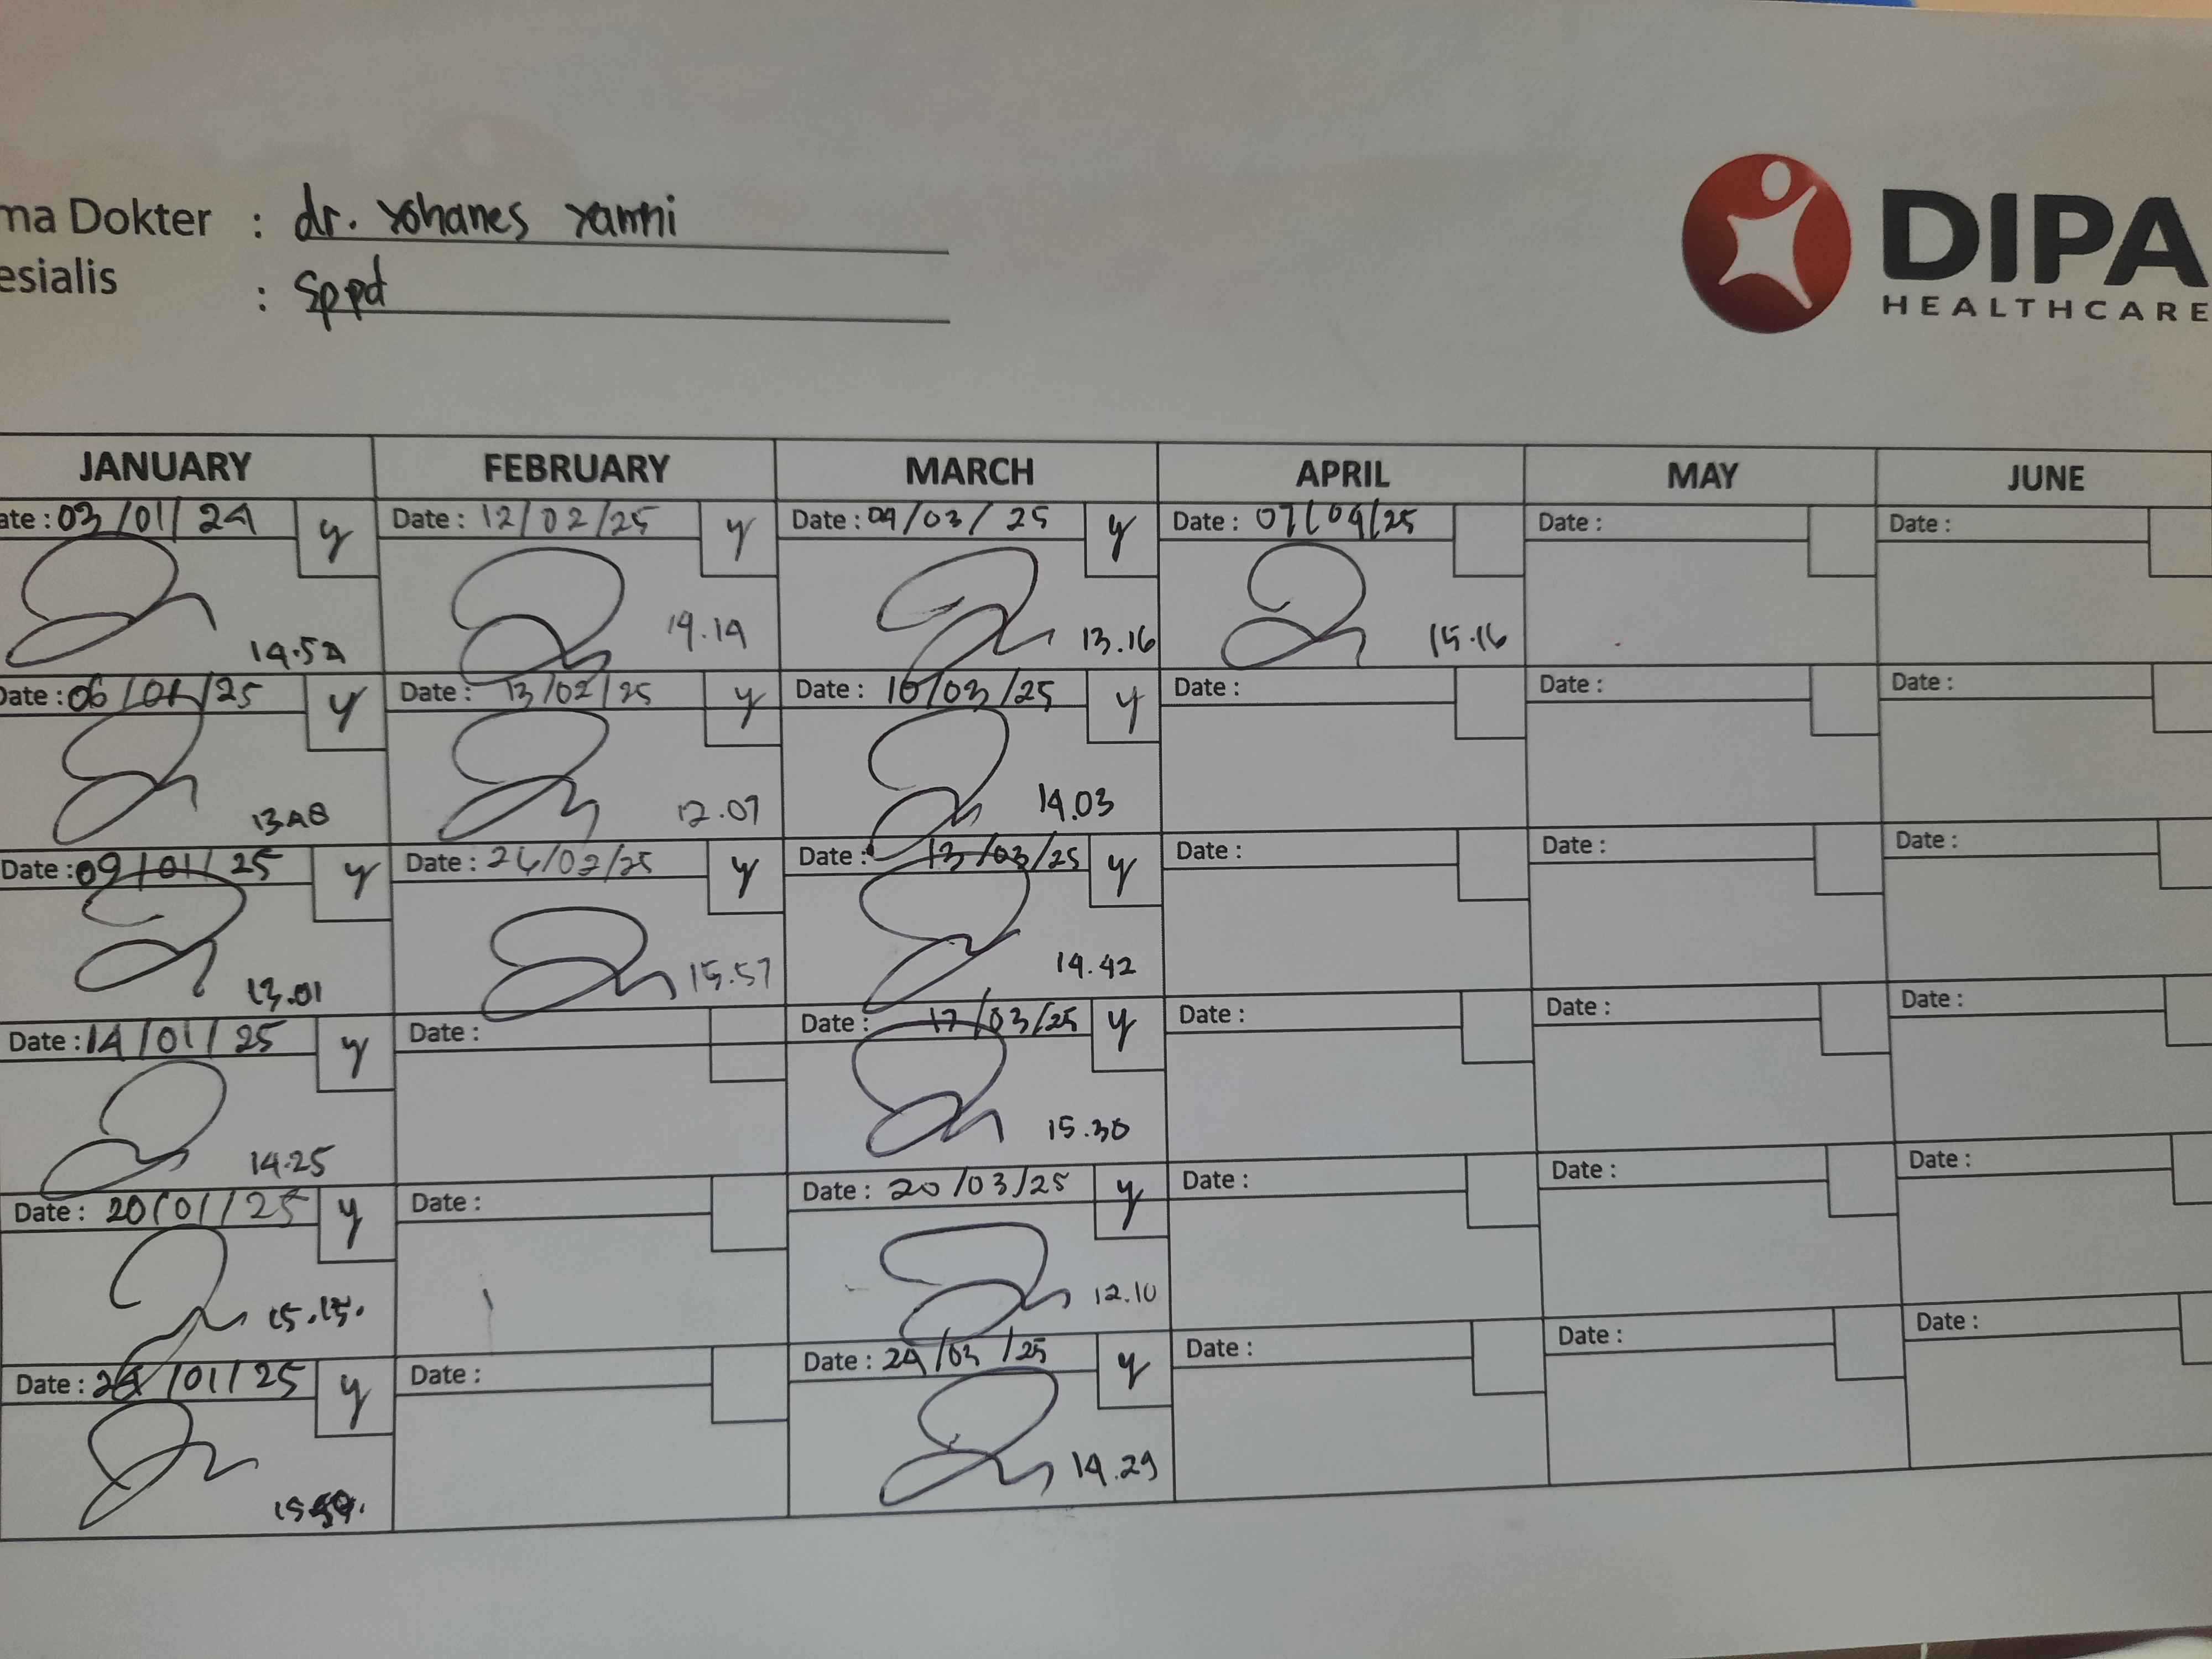 ma Dokter : dr. Yohanes Yanni
esialis : Sppd
DIPA
HEALTHCARE
JANUARY FEBRUARY MARCH APRIL MAY JUNE
ate : 03/01/24 y Date : 12/02/25 y Date : 04/03/25 y Date : 07/04/25 Date : Date :
14.54 14.14 13.16 15.16
Date : 06/01/25 y Date : 13/02/25 y Date : 10/03/25 y Date : Date : Date :
13.48 12.07 14.03
Date : 09/01/25 y Date : 24/02/25 y Date : 13/03/25 y Date : Date : Date :
13.01 15.57 14.42
Date : 14/01/25 y Date : Date : 17/03/25 y Date : Date : Date :
14.25 15.30
Date : 20/01/25 y Date : Date : 20/03/25 y Date : Date : Date :
15.15. 12.10
Date : /01/25 y Date : Date : 24/03/25 y Date : Date : Date :
14.29